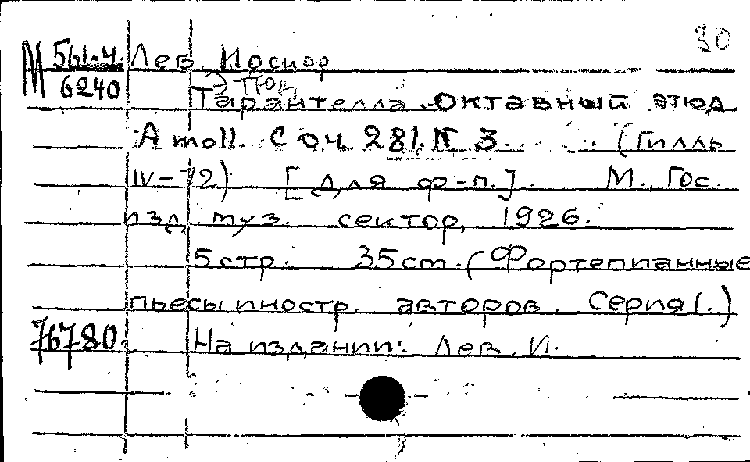 30
М 561-4 Лев, Иосиф
6240 Под
Тарантелла. Октавный этюд
A moll. Соч. 281, N 3. (Гилль
IV-72) [Для ф-п.]. М. Гос.
изд. муз. сектор, 1926.
5 стр. 35 cm. (Фортепианные
пьесы иностр. авторов. Серия (.)
76780 На издании: Лев. И.